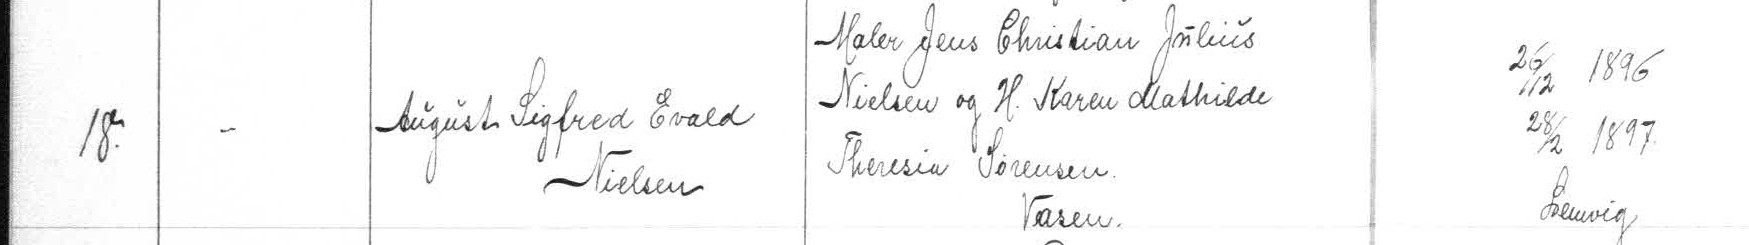 18.
-
August Sigfred Evald
Nielsen
Maler Jens Christian Julius
Nielsen og H. Karen Mathilde
Theresia Sørensen.
Vasen.
26/12 1896
28/2 1897.
Lemvig